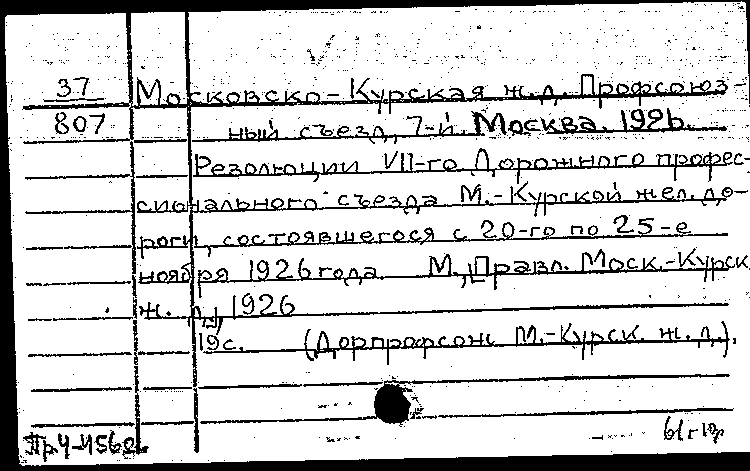 37 Московско-Курская ж.д. Профсоюз-
807 ный съезд, 7-й. Москва. 1926.
Резолюции VII-го Дорожного профес-
сионального съезда М.-Курской жел. до-
роги, состоявшегося с 20-го по 25-е
ноября 1926 года. М., [Правл. Моск.-Курск.
ж. д.], 1926
19 с. (Дорпрофсож М.-Курск. ж. д.).